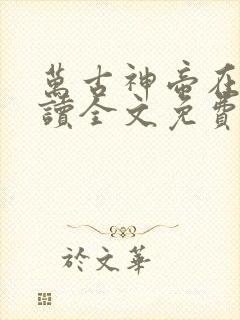 萬古神帝在
讀全文免費
於文華